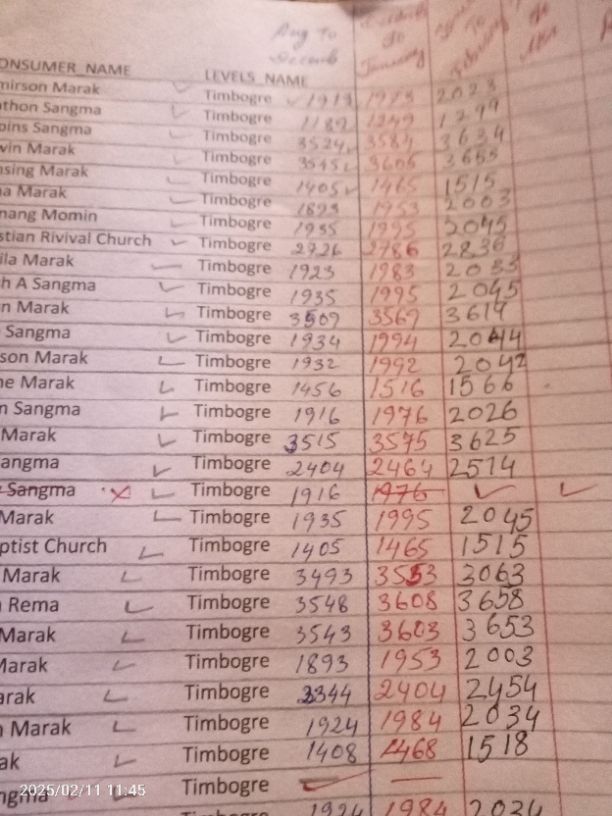 Aug To Decemb
To January
To February
To
CONSUMER_NAME LEVELS_NAME
mirson Marak Timbogre 1913 1973 2023
athon Sangma Timbogre 1189 1249 1299
bins Sangma Timbogre 3524 3584 3634
win Marak Timbogre 3545 3605 3655
nsing Marak Timbogre 1405 1465 1515
na Marak Timbogre 1893 1953 2003
nang Momin Timbogre 1935 1995 2045
stian Rivival Church Timbogre 2726 2786 2836
ila Marak Timbogre 1923 1983 2033
h A Sangma Timbogre 1935 1995 2045
n Marak Timbogre 3509 3569 3619
Sangma Timbogre 1934 1994 2044
son Marak Timbogre 1932 1992 2042
ne Marak Timbogre 1456 1516 1566
n Sangma Timbogre 1916 1976 2026
Marak Timbogre 3515 3575 3625
angma Timbogre 2404 2464 2514
Sangma Timbogre 1916 1976
Marak Timbogre 1935 1995 2045
ptist Church Timbogre 1405 1465 1515
Marak Timbogre 3493 3553 3063
Rema Timbogre 3548 3608 3658
Marak Timbogre 3543 3603 3653
Marak Timbogre 1893 1953 2003
arak Timbogre 2344 2404 2454
n Marak Timbogre 1924 1984 2034
ak Timbogre 1408 1468 1518
ngma Timbogre
1924 1984 2034
2025/02/11 11:45